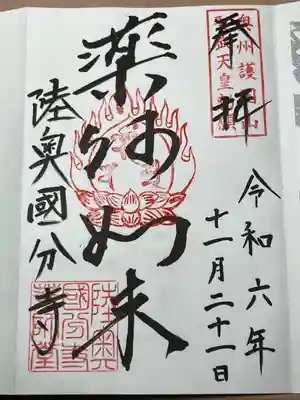 奉拝
奥州護国山
武天皇
令和六年
十一月二十一日
薬師如来
陸奥國分寺
陸奥
國分寺
薬師堂